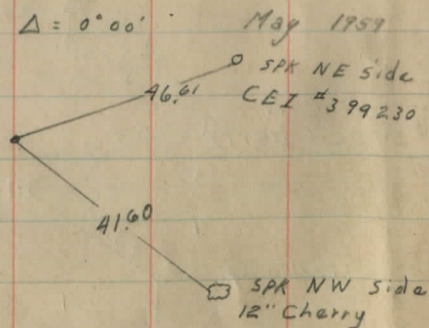 Δ = 0° 00'
May 1959
46.61
SPK NE side
CEI #399230
41.60
SPK NW side
12" Cherry